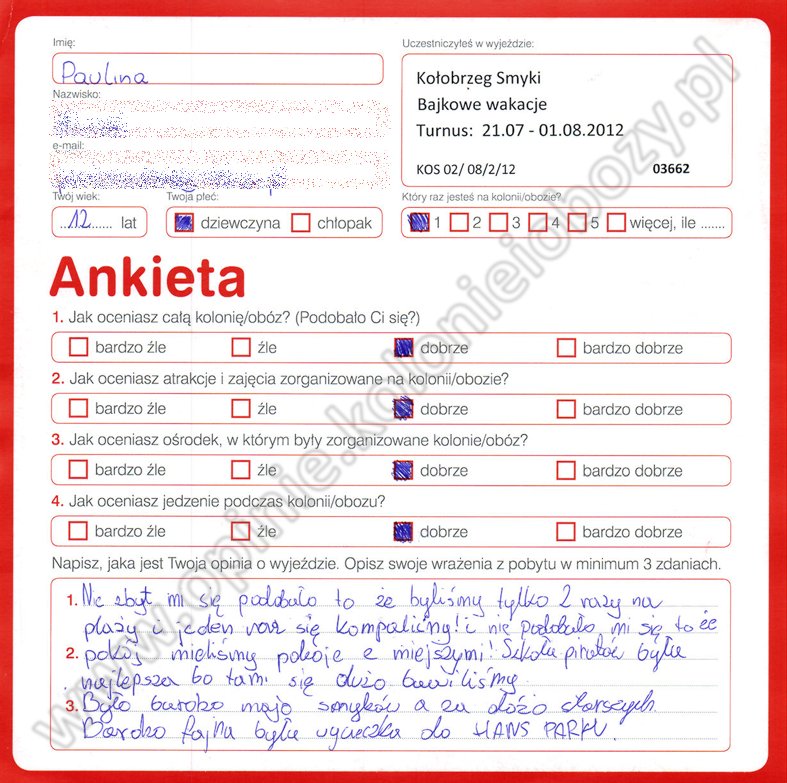 Imię:
Uczestniczyłeś w wyjeździe:
Paulina
Kołobrzeg Smyki
Bajkowe wakacje
Turnus: 21.07 - 01.08.2012
KOS 02/ 08/2/12 03662
Nazwisko:
e-mail:
Twój wiek:
Twoja płeć:
Który raz jesteś na kolonii/obozie?
..12...... lat
dziewczyna chłopak
1 2 3 4 5 więcej, ile .......
Ankieta
1. Jak oceniasz całą kolonię/obóz? (Podobało Ci się?)
bardzo źle źle dobrze bardzo dobrze
2. Jak oceniasz atrakcje i zajęcia zorganizowane na kolonii/obozie?
bardzo źle źle dobrze bardzo dobrze
3. Jak oceniasz ośrodek, w którym były zorganizowane kolonie/obóz?
bardzo źle źle dobrze bardzo dobrze
4. Jak oceniasz jedzenie podczas kolonii/obozu?
bardzo źle źle dobrze bardzo dobrze
Napisz, jaka jest Twoja opinia o wyjeździe. Opisz swoje wrażenia z pobytu w minimum 3 zdaniach.
1. Nie zbyt mi się podobało to że byliśmy tylko 2 razy na
plaży i jeden raz się kompaliśmy! i nie podobało mi się to że
2. pokój mieliśmy pokoje z miejszymi! Szkoła piratów była
najlepsza bo tam się dużo bawiliśmy
3. Było bardzo mało smyków a za dóżo starszych.
Bardzo fajna była wycieczka do HANS PARKU.
www.opinie.kolonieiobozy.pl